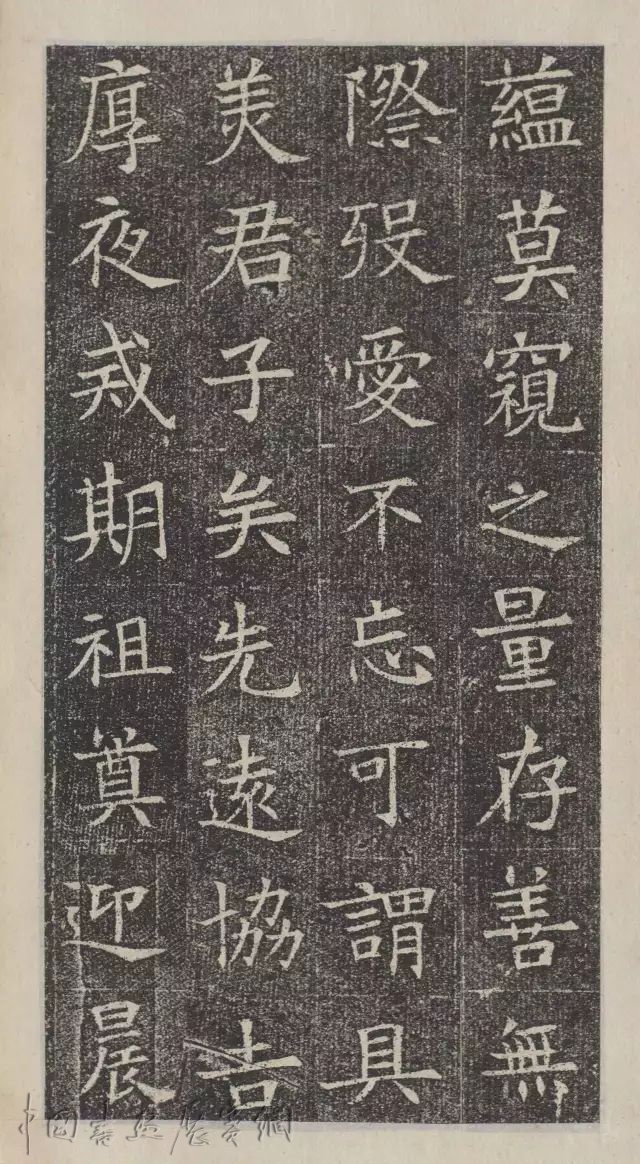 蘊莫窺之量存善無
際殁愛不忘可謂具
美君子矣先遠恊吉
厚夜戒期祖奠迎晨
中国書法展賞網